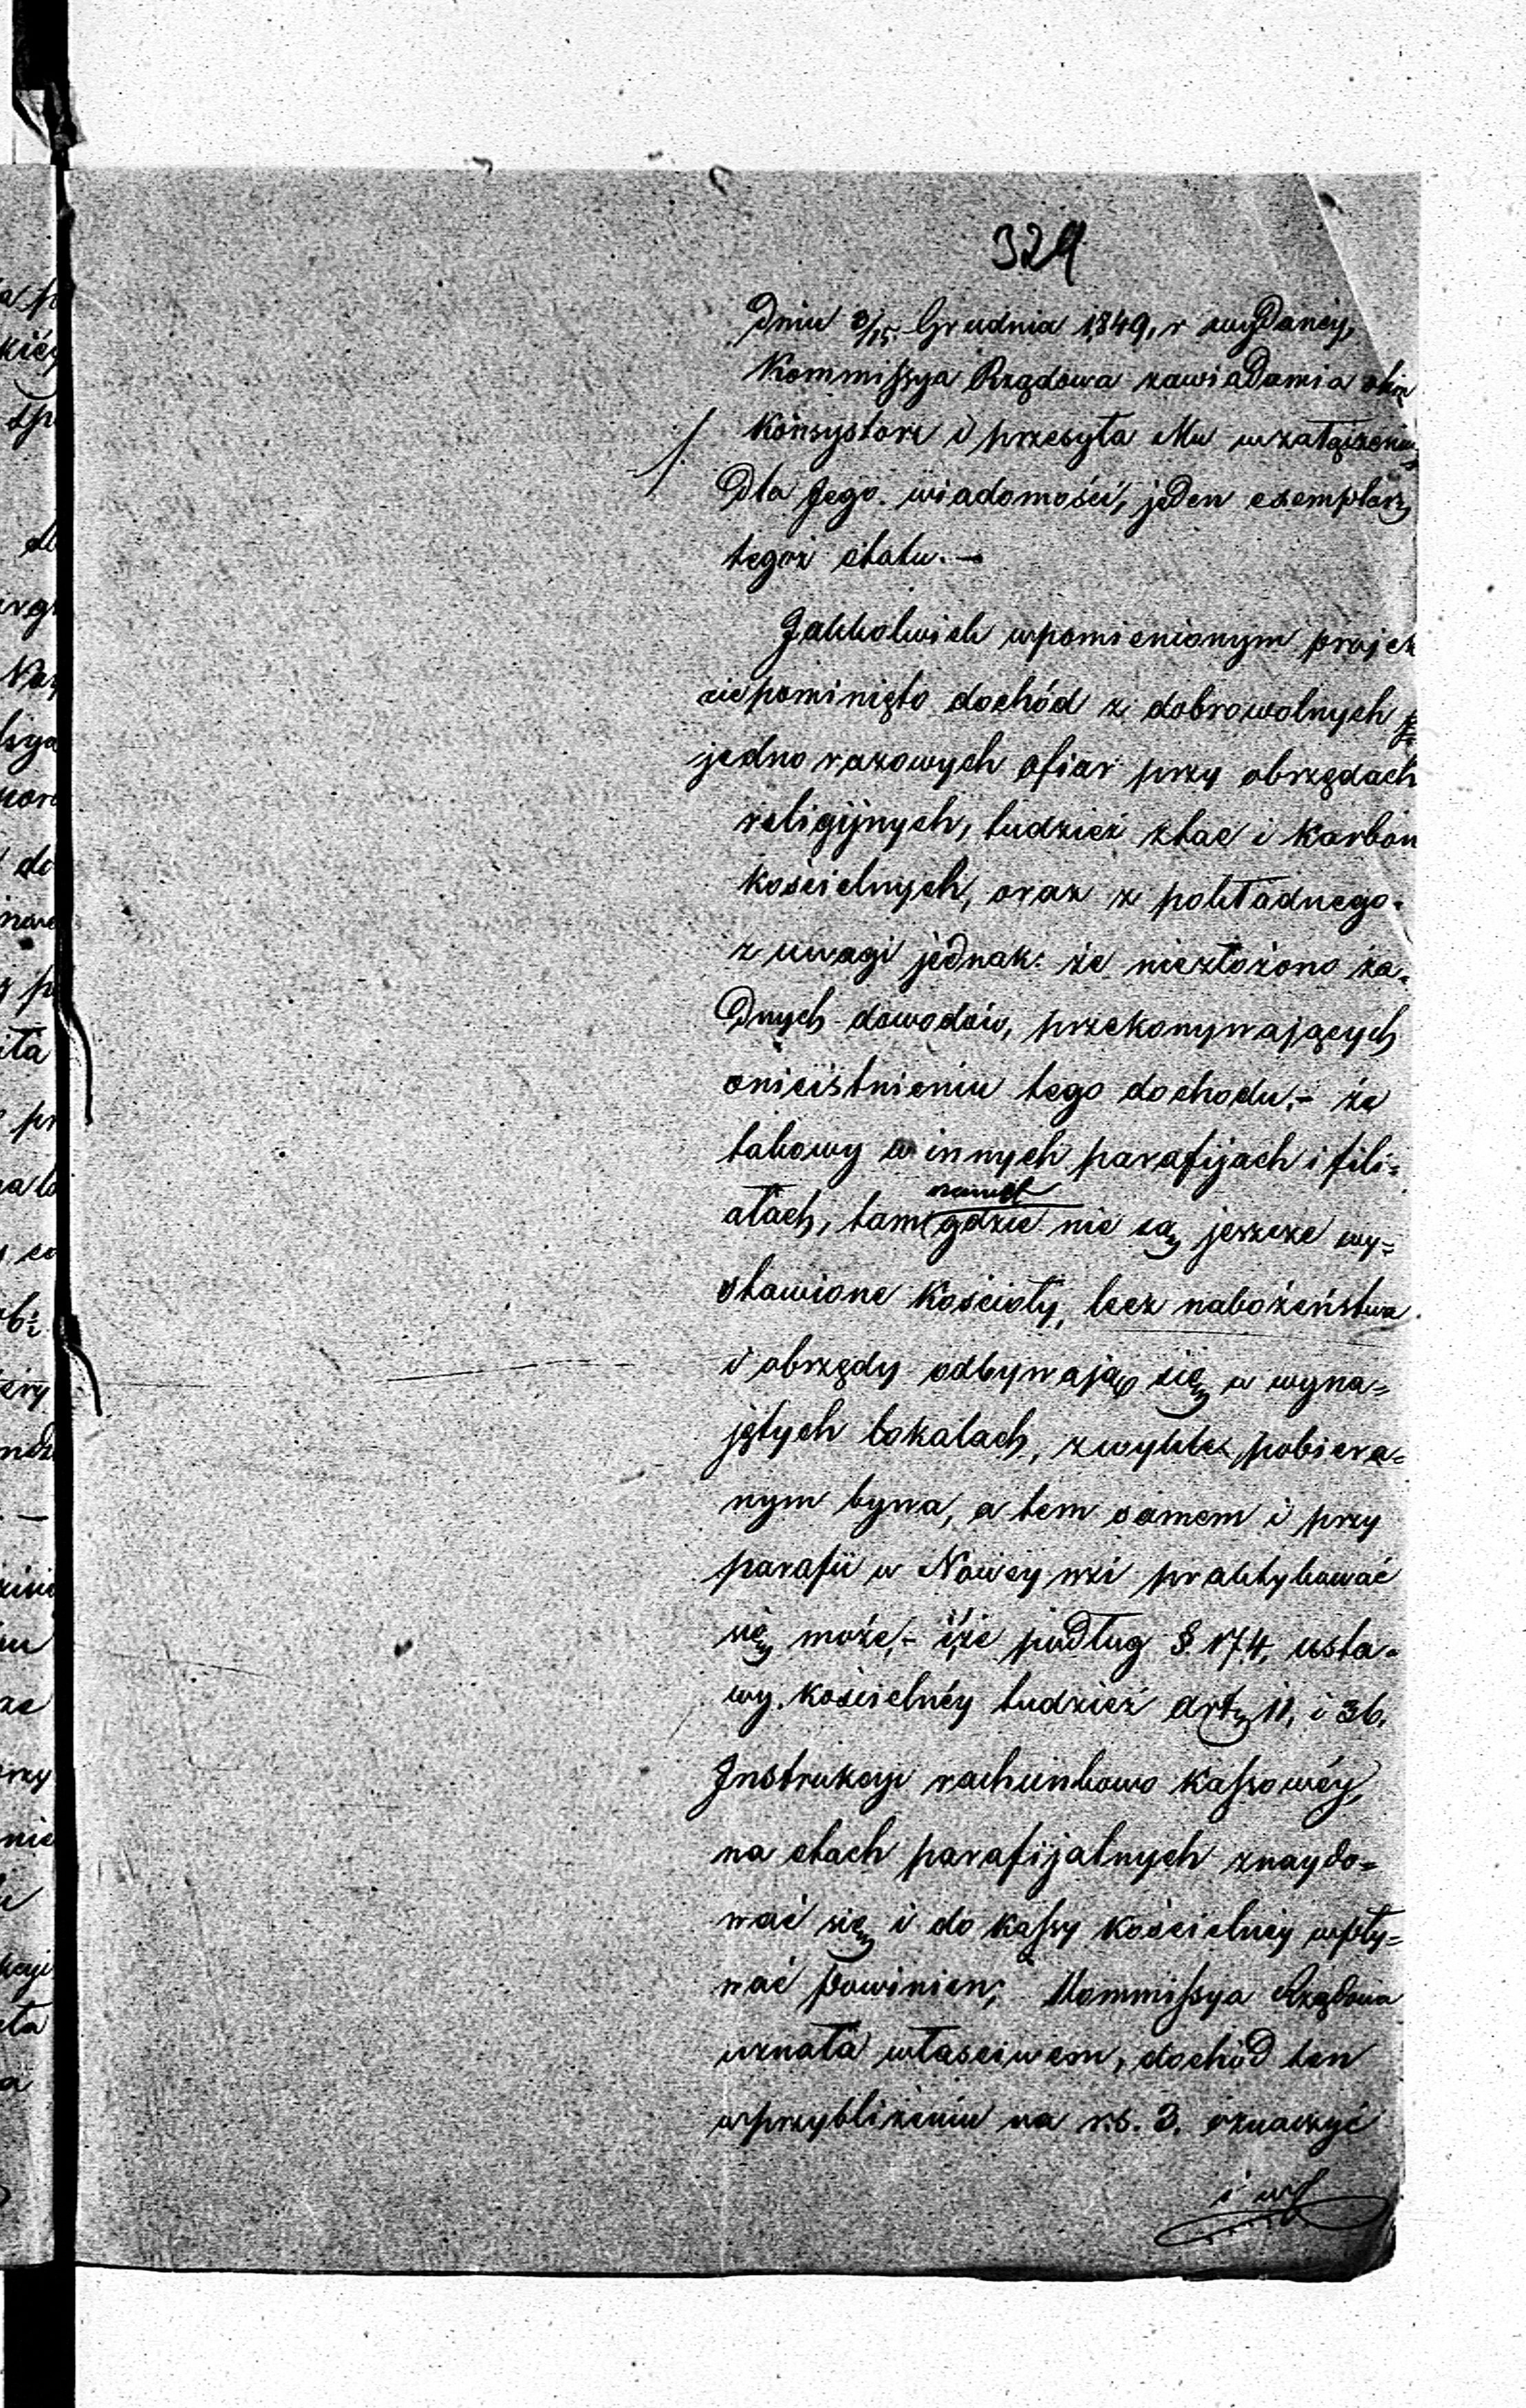 324
Dniu 3/15. Grudnia 1849, r wydaney,
Kommissya Rządowa zawiadamia
Konsystorz i przesyła Mu w załączeniu,
Dla Jego wiadomości, jeden exemplarz
tegoż etatu. —
Jakkolwiek wpomienionym projek
cie pominięto dochód z dobrowolnych
jedno razowych ofiar przy obrzędach
religijnych, tudzież z tac i Karbon
kościelnych, oraz z pokładnego.
z uwagi jednak: że niezłożono ża=
Dnych dowodów, przekonywających
onieistnieniu tego dochodu; – że
takowy w innych parafijach i fili=
ałach, tam nawet gdzie nie są jeszcze wy=
stawione Kościoły, lecz nabożeństwa
i obrzędy odbywają się w wyna=
jętych lokalach, zwykle pobiera=
nym bywa, a tem samem i przy
parafii w Nowey wsi praktykować
się może, – iże podług §. 174, usta=
wy kościelnéy tudzież art. 11, i 36.
Instrukcyi rachunkowo Kassowéy,
na etach parafijalnych znaydo=
wać się i do kassy kościelnéy wpły=
wać powinien; Kommissya Rządowa
uznała właściwem, dochód ten
w przybliżeniu na rs. 3. oznaczyć